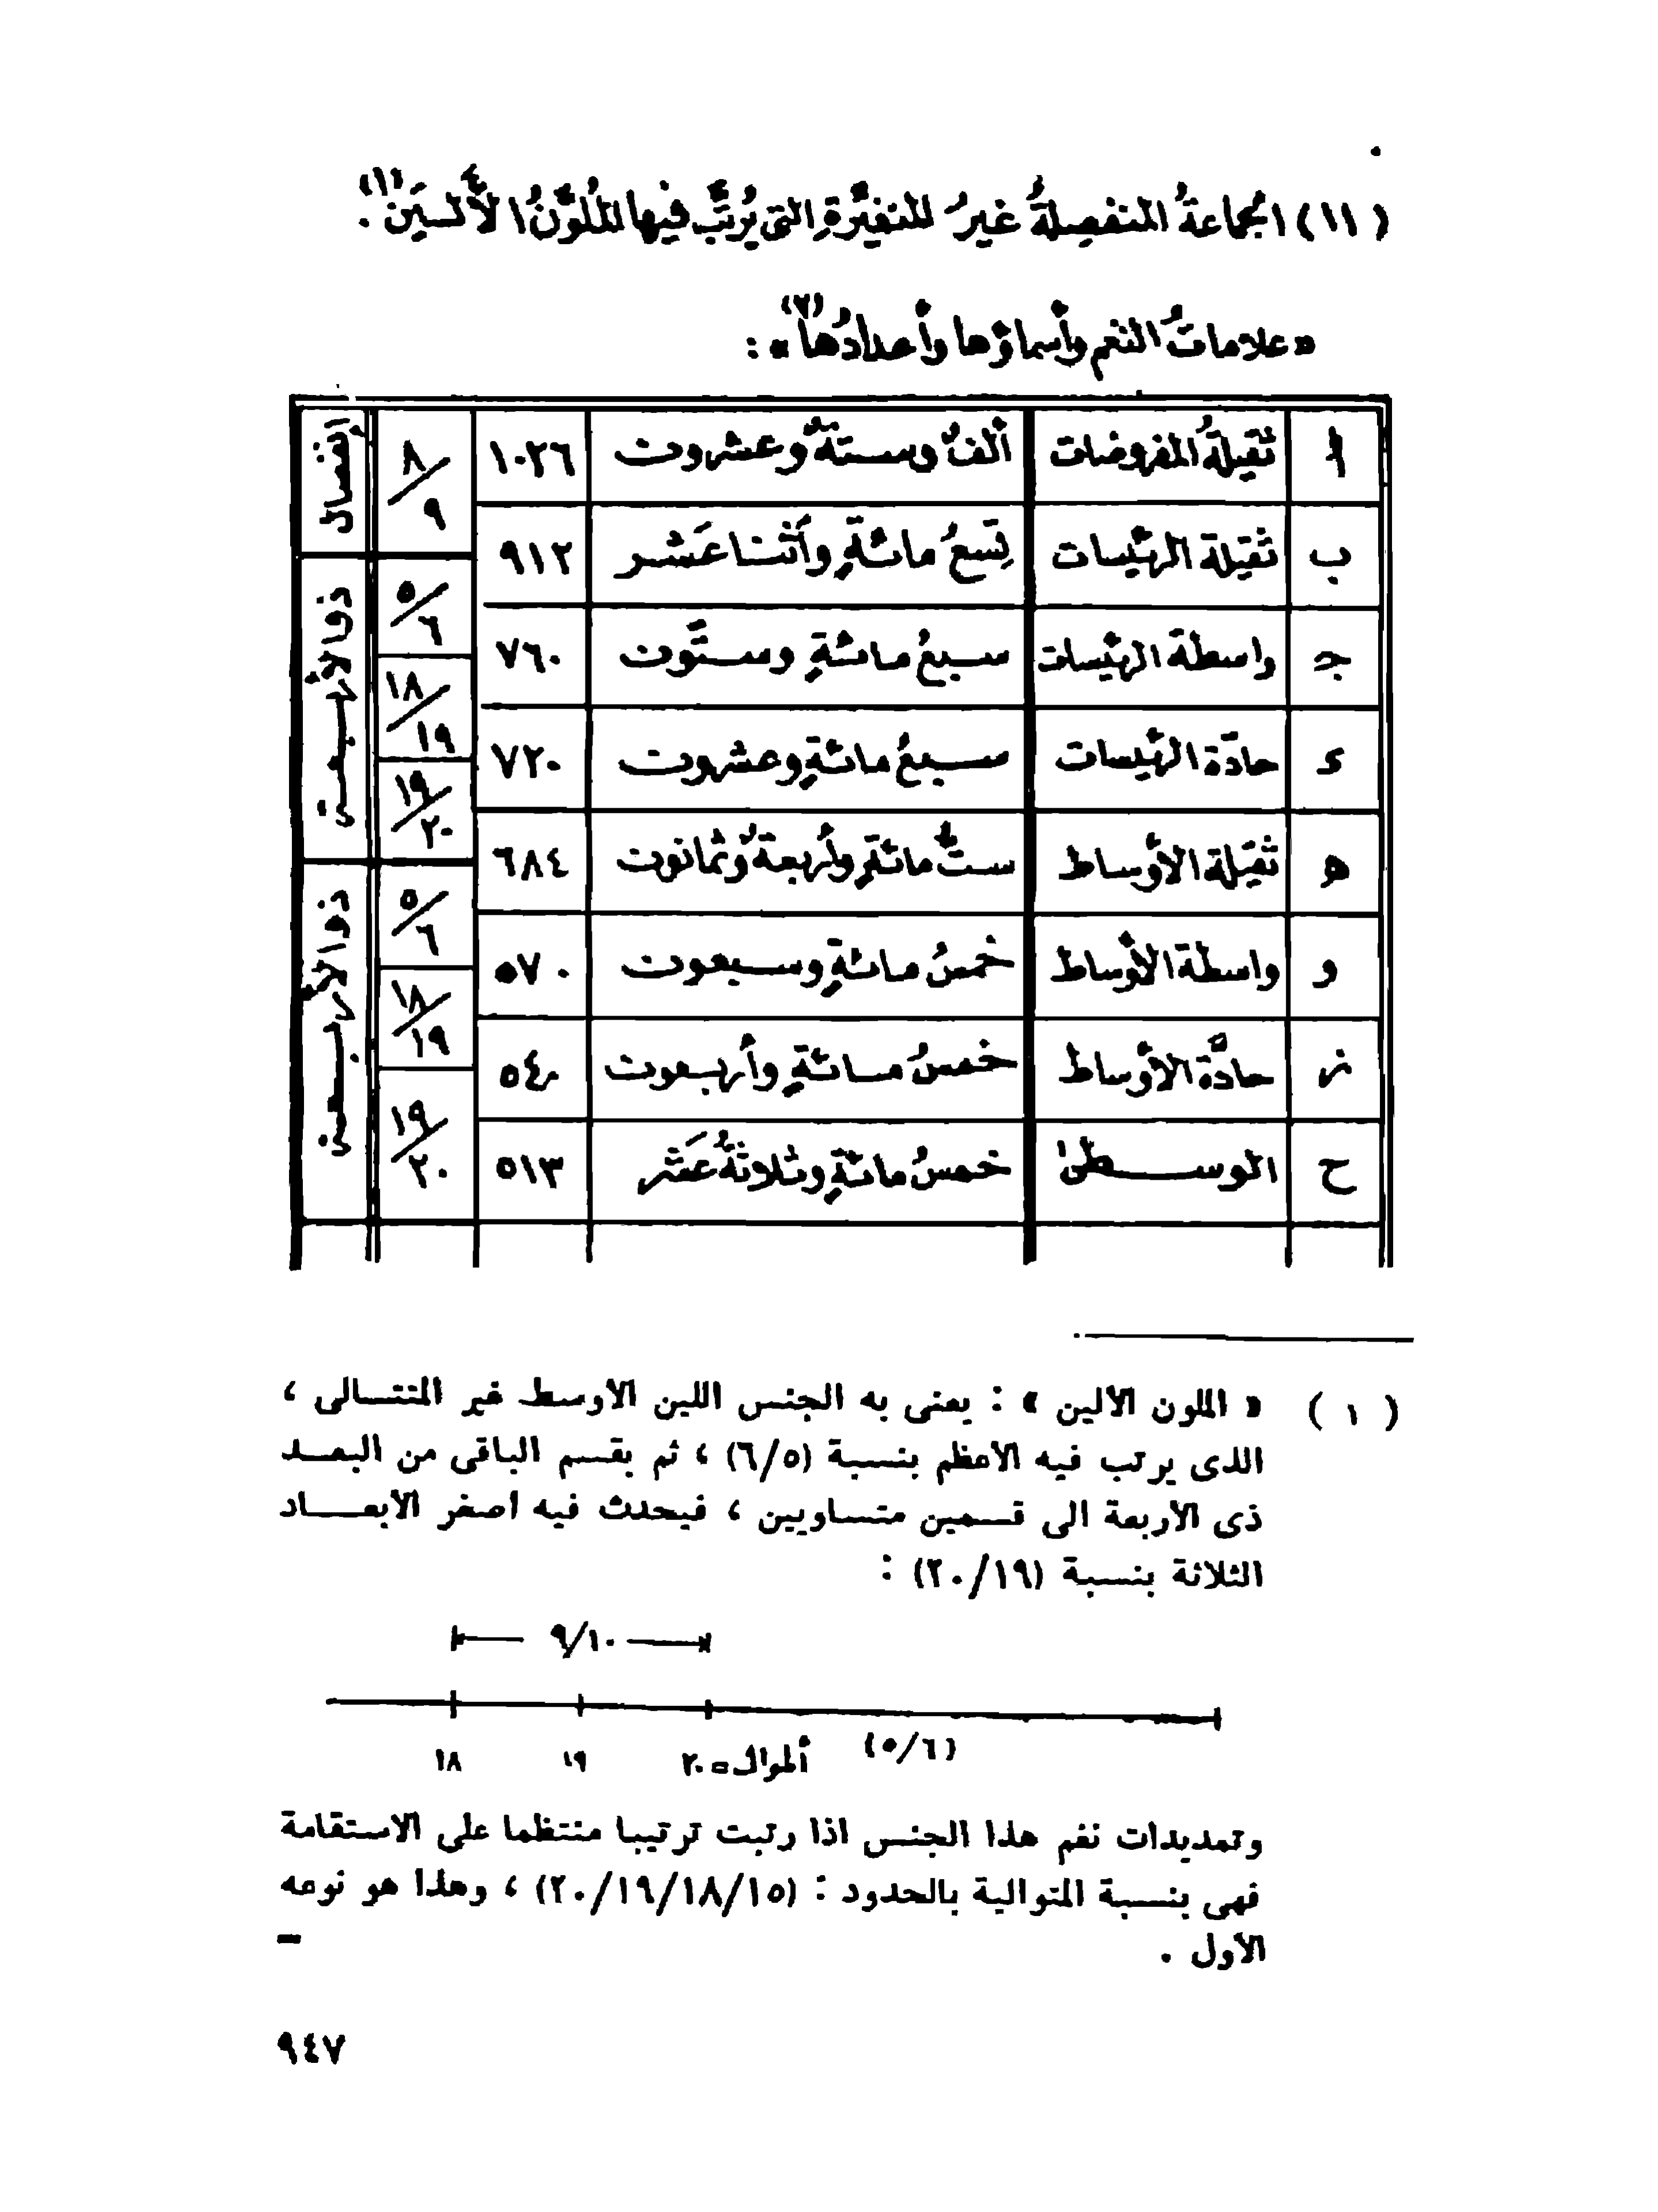 (١١) الجماعةُ المنفصِلةُ غيرُ المتغيِّرةِ التى يُرتَّب فيها المُلوَّنُ الأَلْيَن(١).
«علاماتُ النغم وأسماؤها وأعدادُها(٢)» :
ا ثقيلةُ المفروضات ألفٌ وستةٌ وعشرون ١٠٢٦
ب ثقيلة الرئيسات تِسعُ مائةٍ وأثنا عَشر ٩١٢
جـ واسطة الرئيسات سبعُ مائةٍ وستّون ٧٦٠
ء حادّة الرئيسات سبعُ مائةٍ وعشرون ٧٢٠
ه ثقيلة الأوساط ستُّ مائةٍ وأربعةٌ وثمانون ٦٨٤
و واسطة الأوساط خمسُ مائةٍ وسبعون ٥٧٠
ز حادّة الأوساط خمسُ مائةٍ وأربعون ٥٤٠
ح الوسطىٰ خمسُ مائةٍ وثلاثةُ عَشر ٥١٣
٨/٩
٥/٦
١٨/١٩
١٩/٢٠
٥/٦
١٨/١٩
١٩/٢٠
إنفصال
ذو الأربعة
ذو الأربعة
(١) « الملون الألين » : يعنى به الجنس اللين الأوسط غير المتتالى ،
الذى يرتب فيه الأعظم بنسبة (٦/٥) ، ثم يقسم الباقى من البعد
ذى الأربعة الى قسمين متساويين ، فيحدث فيه أصغر الأبعاد
الثلاثة بنسبة (٢٠/١٩) :
٩/١٠
(٥/٦) أطوال = ٢٠ ١٩ ١٨
وتمديدات نغم هذا الجنس اذا رتبت ترتيبا منتظما على الاستقامة
فهى بنسبة المتوالية بالحدود : (٢٠/١٩/١٨/١٥) ، وهذا هو نوعه
الأول . –
٩٤٧